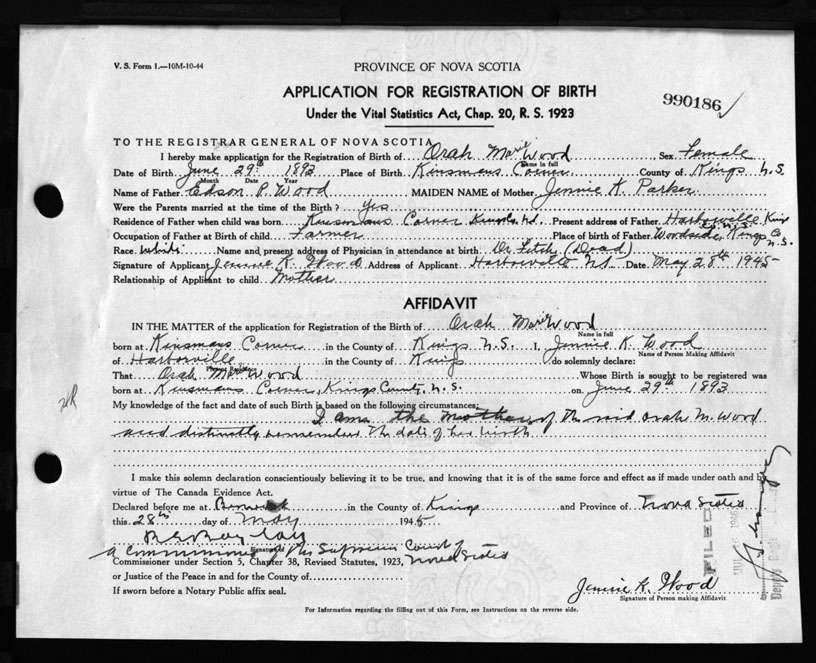 V. S. Form 1.—10M-10-44
PROVINCE OF NOVA SCOTIA
APPLICATION FOR REGISTRATION OF BIRTH
Under the Vital Statistics Act, Chap. 20, R. S. 1923
990186
TO THE REGISTRAR GENERAL OF NOVA SCOTIA
I hereby make application for the Registration of Birth of Orah Mari Wood, Sex Female
Name in full
Date of Birth June 29th 1893 Place of Birth Kinsmans Corner County of Kings N.S.
Month Date Year
Name of Father Edson P. Wood MAIDEN NAME of Mother Jennie K. Parker
Were the Parents married at the time of Birth? Yes
Residence of Father when child was born Kinsmans Corner Present address of Father Harborville Kings
Occupation of Father at Birth of child Farmer Place of birth of Father Woodside, Kings Co N.S.
Race White Name and present address of Physician in attendance at birth Dr Fitch (Dead)
Signature of Applicant Jennie K. Wood Address of Applicant Harborville NS Date May 28th 1945
Relationship of Applicant to child Mother
AFFIDAVIT
IN THE MATTER of the application for Registration of the Birth of Orah Mari Wood
Name in full
born at Kinsmans Corner in the County of Kings N.S. I, Jennie K. Wood
Name of Person Making Affidavit
of Harborville in the County of Kings do solemnly declare:
Present Residence
That Orah Mari Wood Whose Birth is sought to be registered was
born at Kinsmans Corner, Kings County, N.S. on June 29th 1893
My knowledge of the fact and date of such Birth is based on the following circumstances:
I am the Mother of the said Orah M. Wood
and distinctly remember the date of her birth
I make this solemn declaration conscientiously believing it to be true, and knowing that it is of the same force and effect as if made under oath and by
virtue of The Canada Evidence Act.
Declared before me at Berwick in the County of Kings and Province of Nova Scotia
this 28th day of May 1945
Signature of
a Commissioner of the Supreme Court of Nova Scotia
Commissioner under Section 5, Chapter 38, Revised Statutes, 1923,
or Justice of the Peace in and for the County of
If sworn before a Notary Public affix seal.
Jennie K. Wood
Signature of Person making Affidavit
FILED
For Information regarding the filling out of this Form, see Instructions on the reverse side.